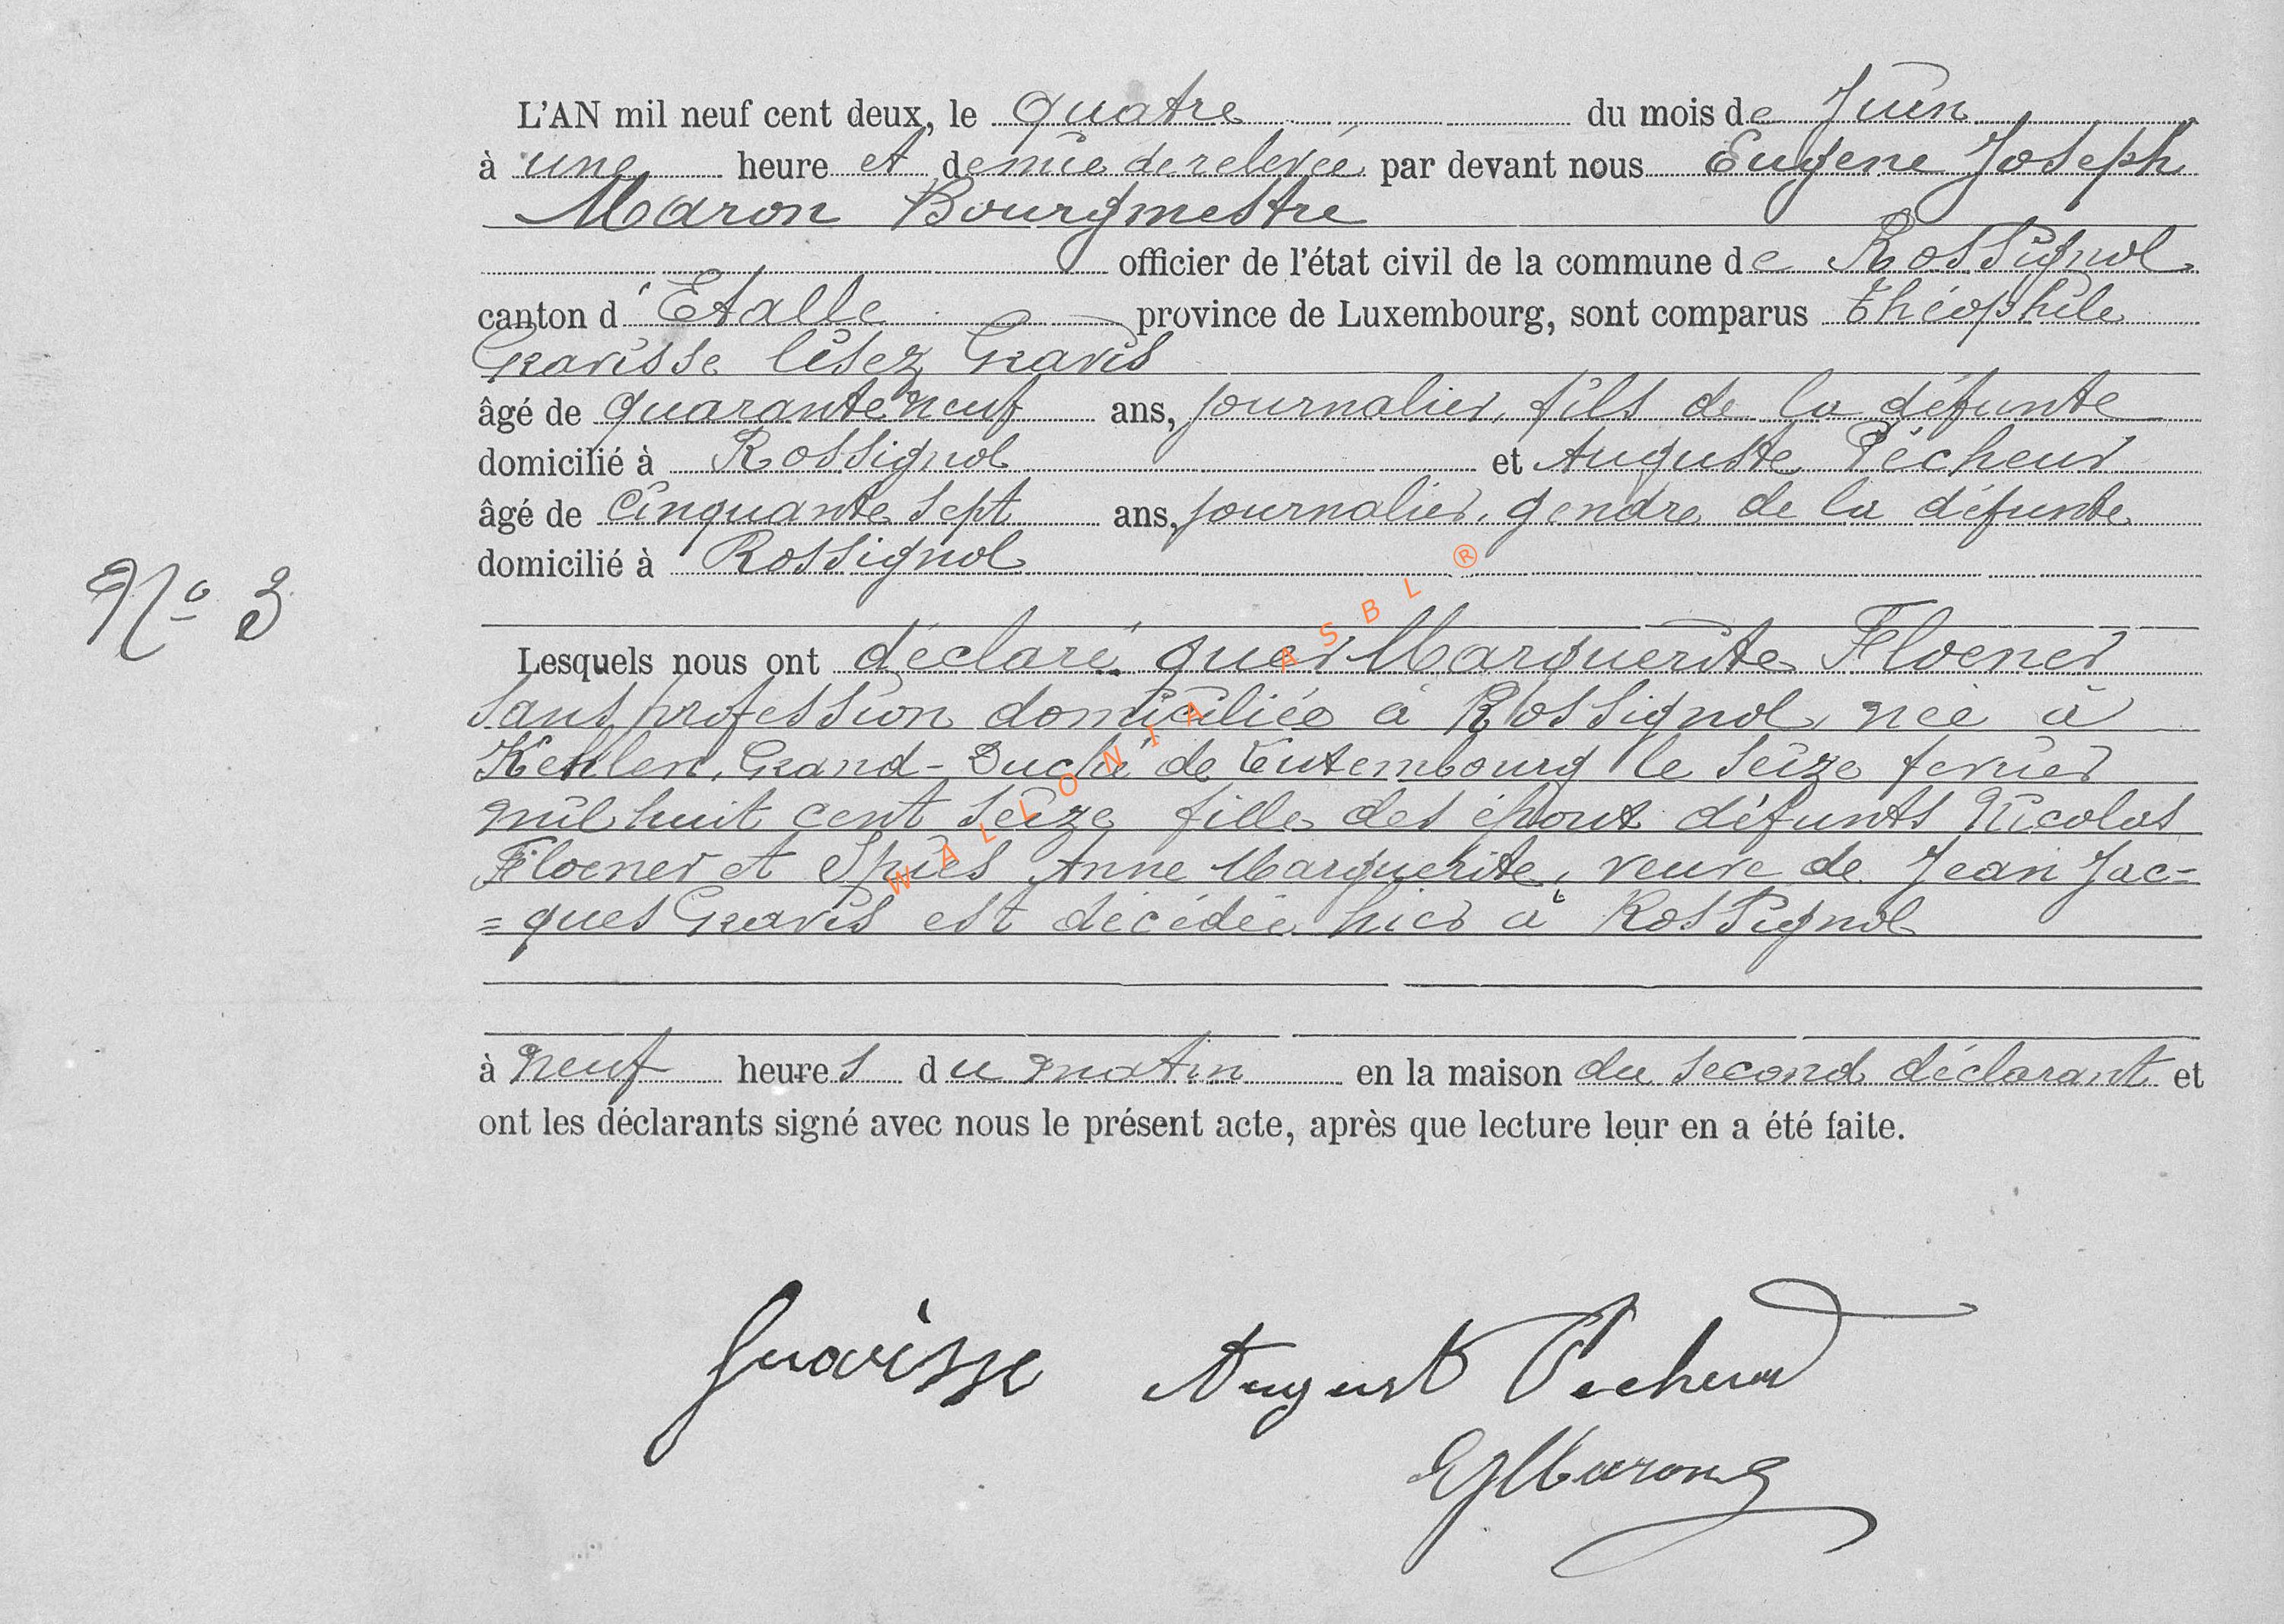 L'AN mil neuf cent deux, le quatre du mois de Juin
à une heure et demie de relevée par devant nous Eugène Joseph
Maron Bourgmestre
officier de l'état civil de la commune de Rossignol
canton d'Etalle province de Luxembourg, sont comparus Théophile
Gravisse lisez Gravis
âgé de quarante neuf ans, journalier, fils de la défunte
domicilié à Rossignol et Auguste Pêcheur
âgé de cinquante sept ans, journalier, gendre de la défunte
domicilié à Rossignol
Nº 3
Lesquels nous ont déclaré que Marguerite Floener
sans profession domiciliée à Rossignol, née à
Kehlen, Grand-Duché de Luxembourg le seize fevrier
mil huit cent seize fille des époux défunts Nicolas
Floener et Spies Anne Marguerite, veuve de Jean Jac=
=ques Gravis est décédée hier à Rossignol
à neuf heures du matin en la maison du second déclarant et
ont les déclarants signé avec nous le présent acte, après que lecture leur en a été faite.
Gravisse August Pecheur
EJMaron
WALLONIA ASBL ®